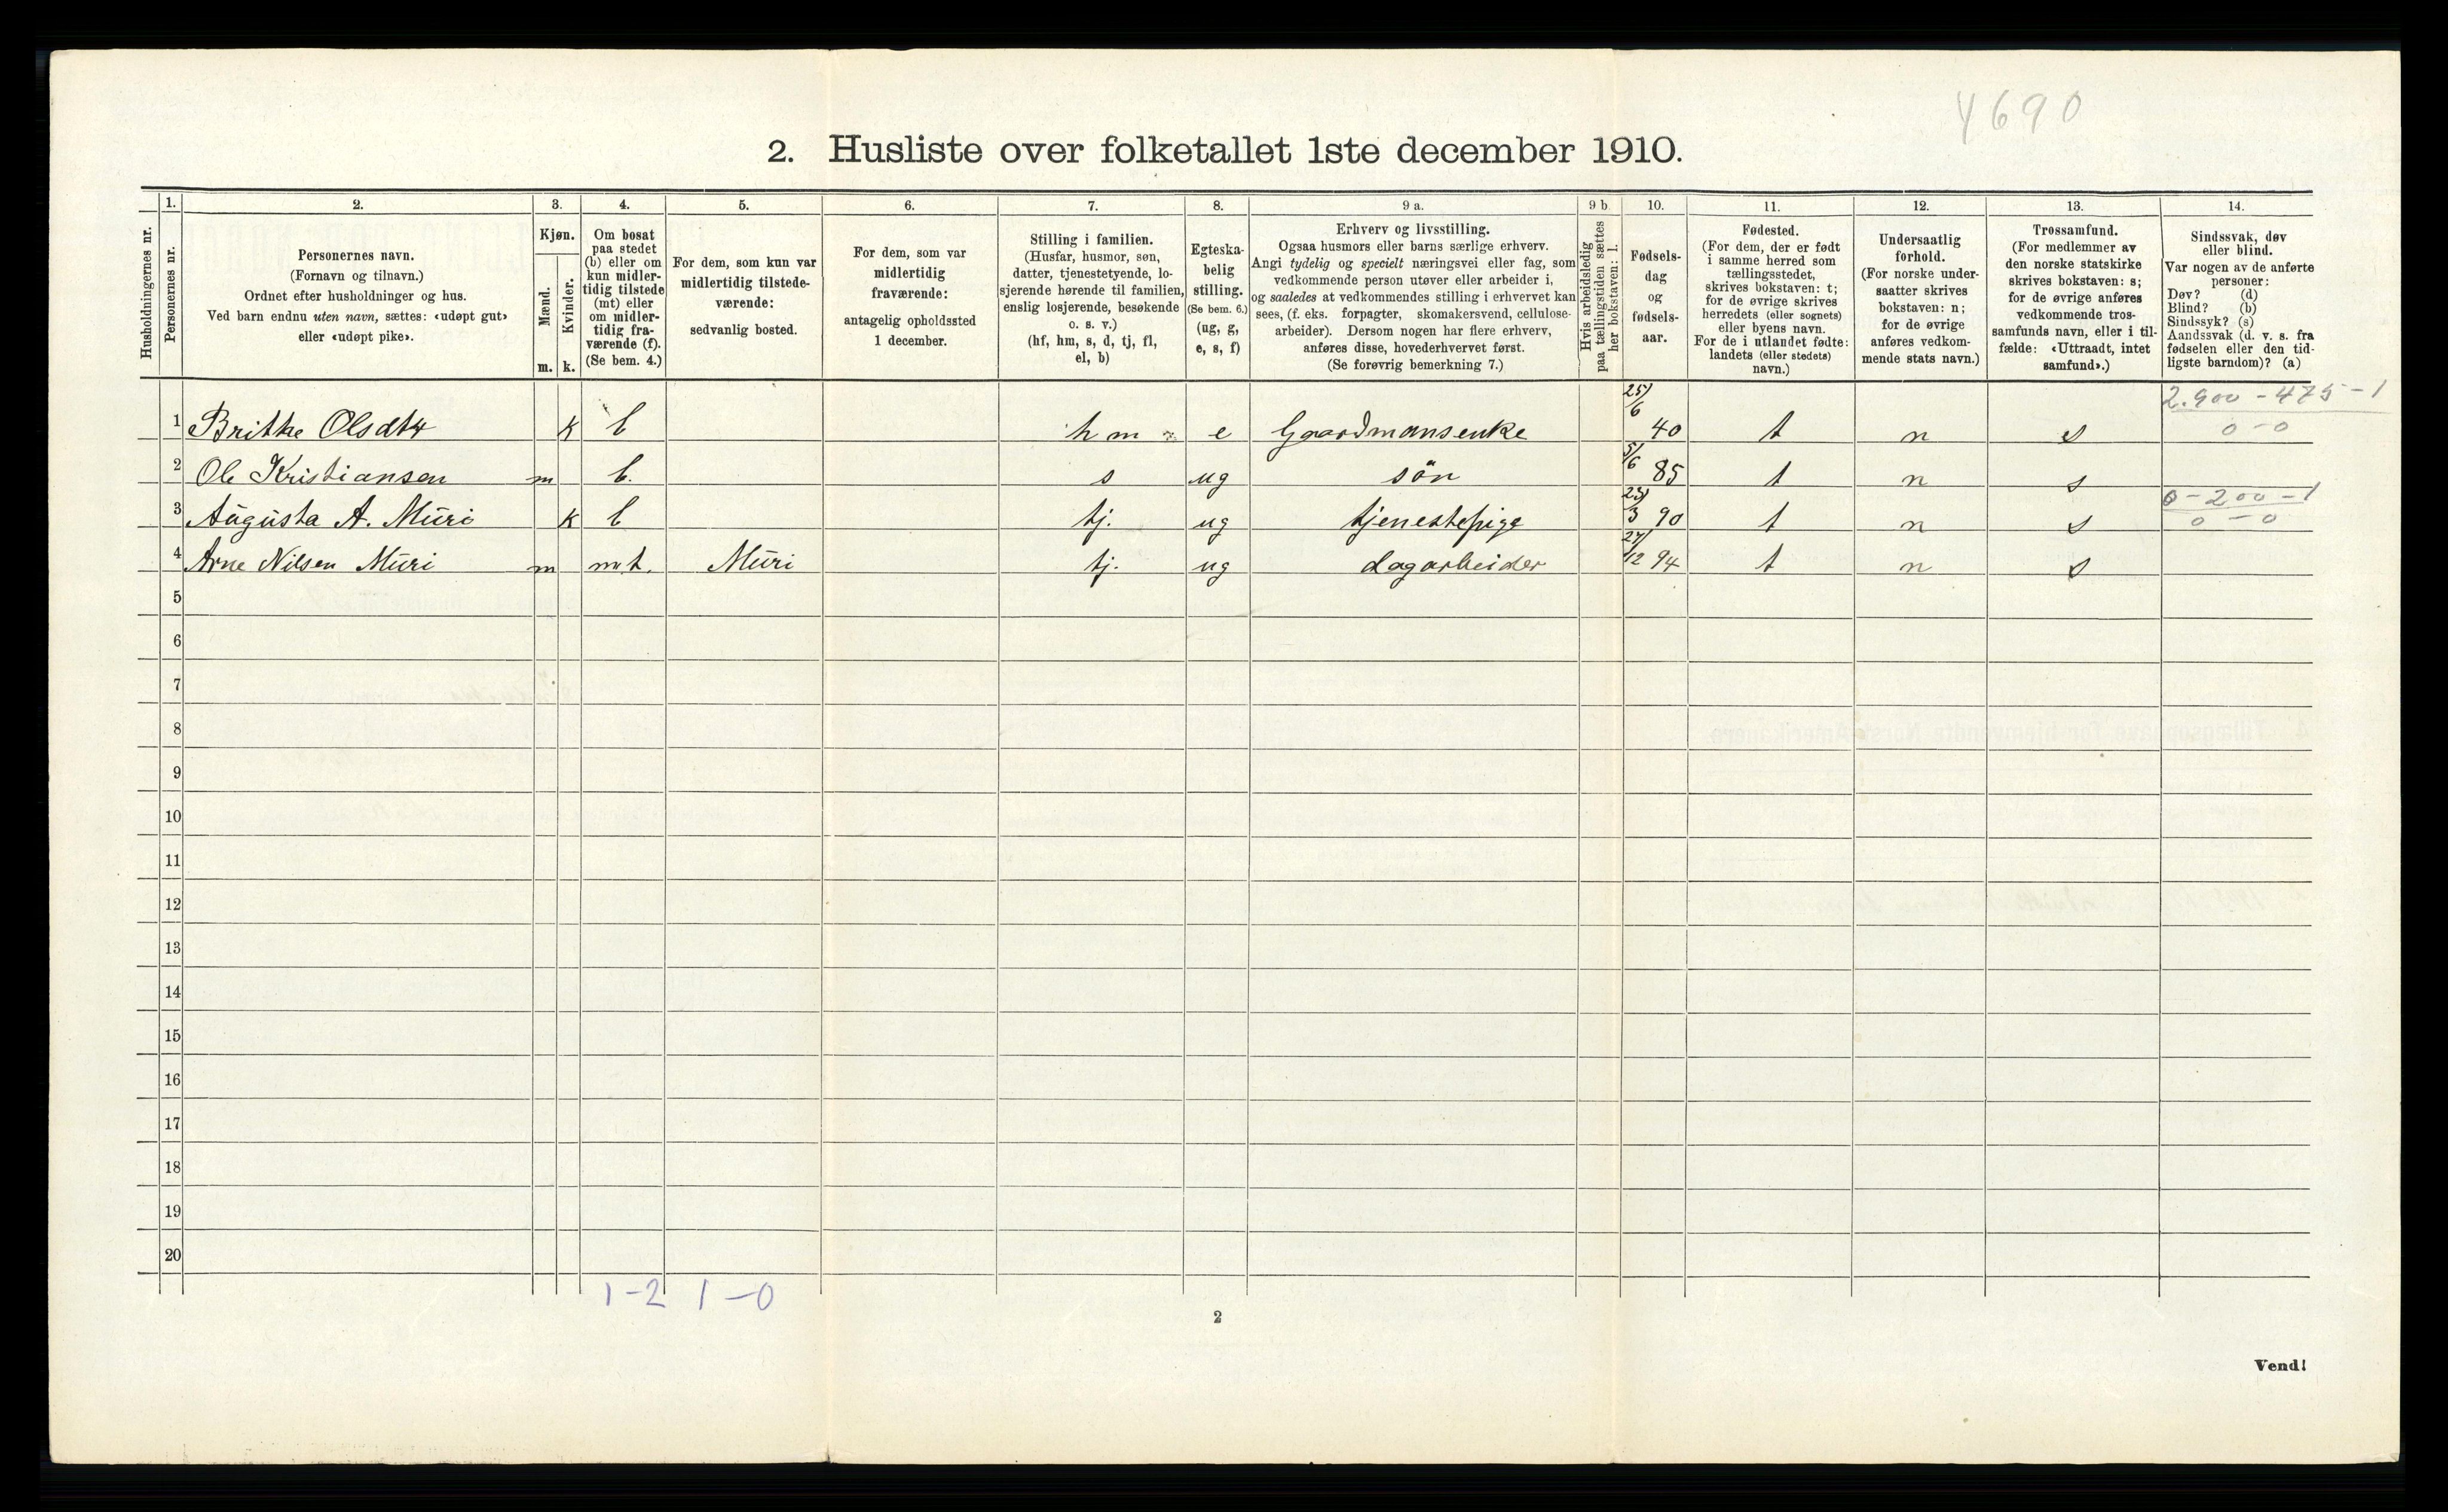 4690
2. Husliste over folketallet 1ste december 1910.
Husholdningernes nr.
1.
Personernes nr.
2.
Personernes navn.
(Fornavn og tilnavn.)
Ordnet efter husholdninger og hus.
Ved barn endnu uten navn, sættes: «udøpt gut»
eller «udøpt pike».
3.
Kjøn.
Mænd.
Kvinder.
m. k.
4.
Om bosat
paa stedet
(b) eller om
kun midler-
tidig tilstede
(mt) eller
om midler-
tidig fra-
værende (f).
(Se bem. 4.)
5.
For dem, som kun var
midlertidig tilstede-
værende:
sedvanlig bosted.
6.
For dem, som var
midlertidig
fraværende:
antagelig opholdssted
1 december.
7.
Stilling i familien.
(Husfar, husmor, søn,
datter, tjenestetyende, lo-
sjerende hørende til familien,
enslig losjerende, besøkende
o. s. v.)
(hf, hm, s, d, tj, fl,
el, b)
8.
Egteska-
belig
stilling.
(Se bem. 6.)
(ug, g,
e, s, f)
9 a.
Erhverv og livsstilling.
Ogsaa husmors eller barns særlige erhverv.
Angi tydelig og specielt næringsvei eller fag, som
vedkommende person utøver eller arbeider i,
og saaledes at vedkommendes stilling i erhvervet kan
sees, (f. eks. forpagter, skomakersvend, cellulose-
arbeider). Dersom nogen har flere erhverv,
anføres disse, hovederhvervet først.
(Se forøvrig bemerkning 7.)
9 b
Hvis arbeidsledig
paa tællingstiden sættes
her bokstaven: l.
10.
Fødsels-
dag
og
fødsels-
aar.
11.
Fødested.
(For dem, der er født
i samme herred som
tællingsstedet,
skrives bokstaven: t;
for de øvrige skrives
herredets (eller sognets)
eller byens navn.
For de i utlandet fødte:
landets (eller stedets)
navn.)
12.
Undersaatlig
forhold.
(For norske under-
saatter skrives
bokstaven: n;
for de øvrige
anføres vedkom-
mende stats navn.)
13.
Trossamfund.
(For medlemmer av
den norske statskirke
skrives bokstaven: s;
for de øvrige anføres
vedkommende tros-
samfunds navn, eller i til-
fælde: «Uttraadt, intet
samfund».)
14.
Sindssvak, døv
eller blind.
Var nogen av de anførte
personer:
Døv? (d)
Blind? (b)
Sindssyk? (s)
Aandssvak (d. v. s. fra
fødselen eller den tid-
ligste barndom)? (a)
2.900 - 475 - 1
1 Brithe Olsdtr k b hm e Gaardmansenke 25/6 40 t n s 0 - 0
2 Ole Kristiansen m b. s ug sön 5/6 85 t n s
0 - 200 - 1
3 Augusta A. Muri k b tj. ug tjenestepige 23/3 90 t n s 0 - 0
4 Arne Nilsen Muri m mt. Muri tj. ug dagarbeider 27/12 94 t n s
5
6
7
8
9
10
11
12
13
14
15
16
17
18
19
20
1 - 2 1 - 0
2
Vend!